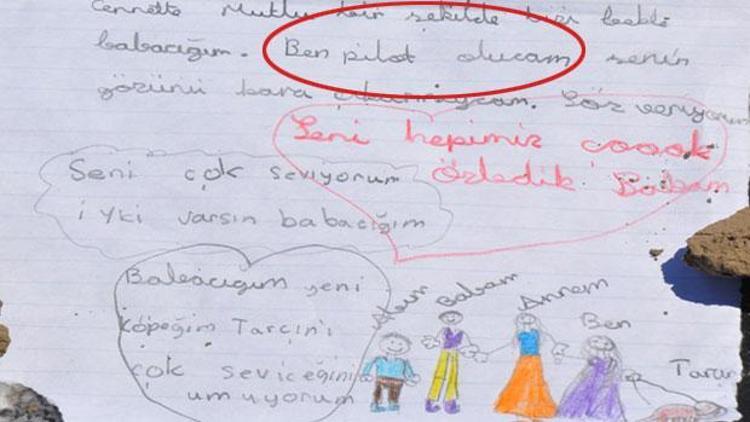 Cennette Mutlu bir şekilde bizi bekle
babacığım. Ben pilot olucam senin
yüzünü kara çıkarmıyıcam. Söz veriyorum
Seni hepimiz çoook
özledik Babam
Seni çok seviyorum
iyki varsın babacığım
Babacığım seni
köpeğim Tarçın'ı
çok seviceğini
umuyorum
Babam
Annem
Ben
Tarçın